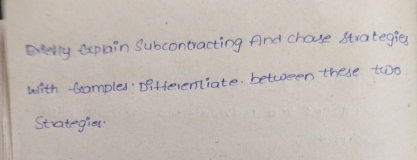 Briefly Explain Subcontracting And chase strategies
with Examples. Differentiate between these two
Strategies.